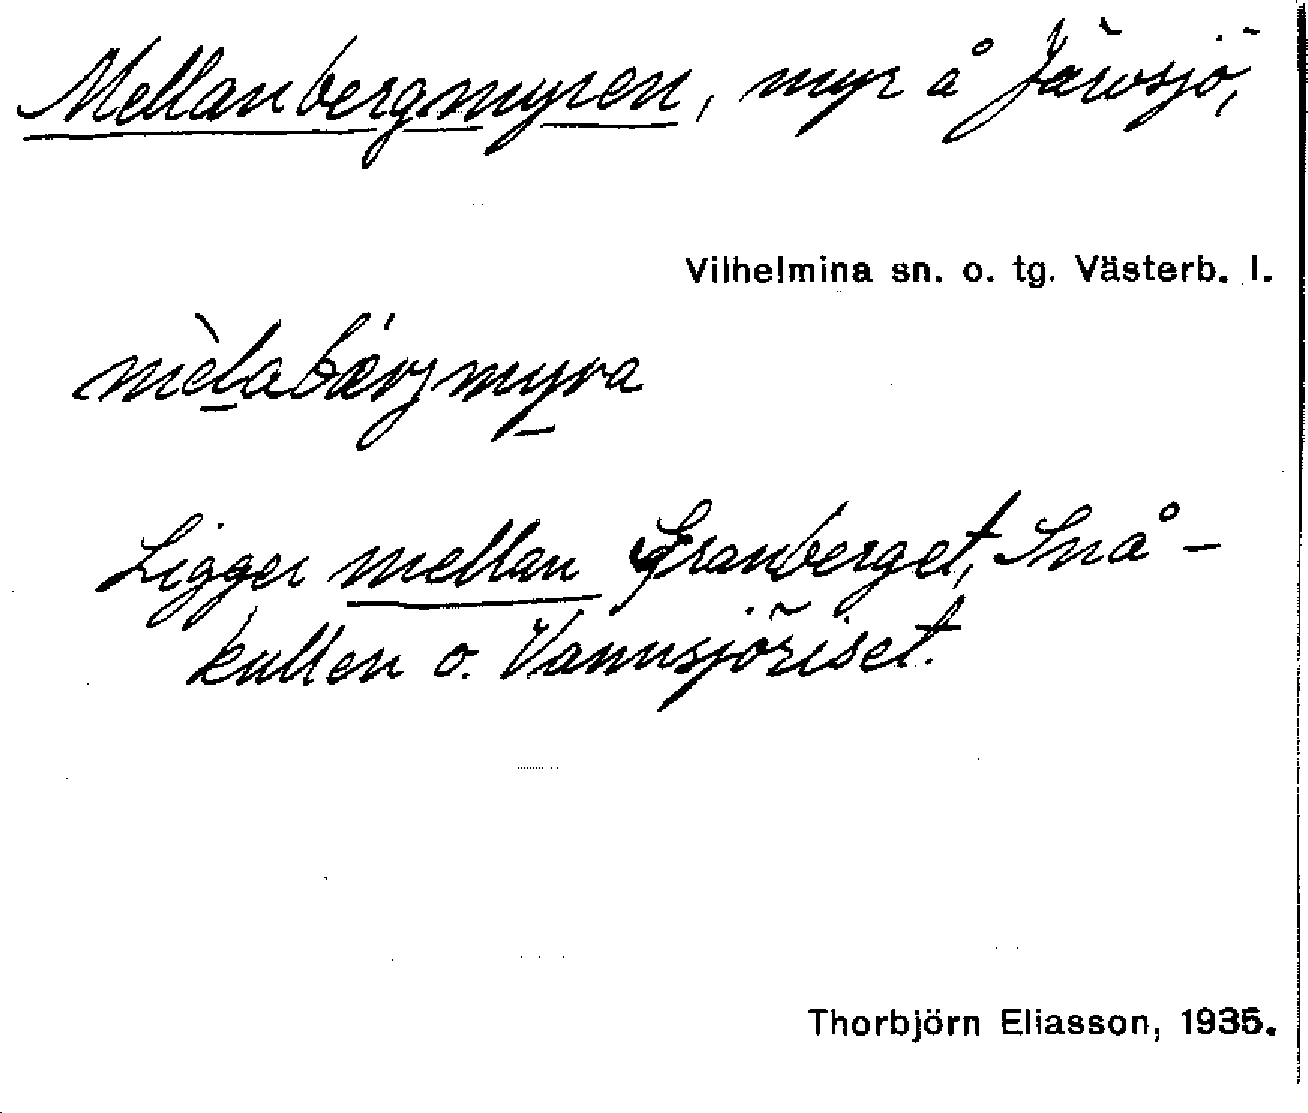 Mellanbergmyren, myr å Järvsjö,
Vilhelmina sn. o. tg. Västerb. l.
mèlabærjmyra
Ligger mellan Granberget, Snå-
kullen o. Vannsjöriset.
Thorbjörn Eliasson, 1935.